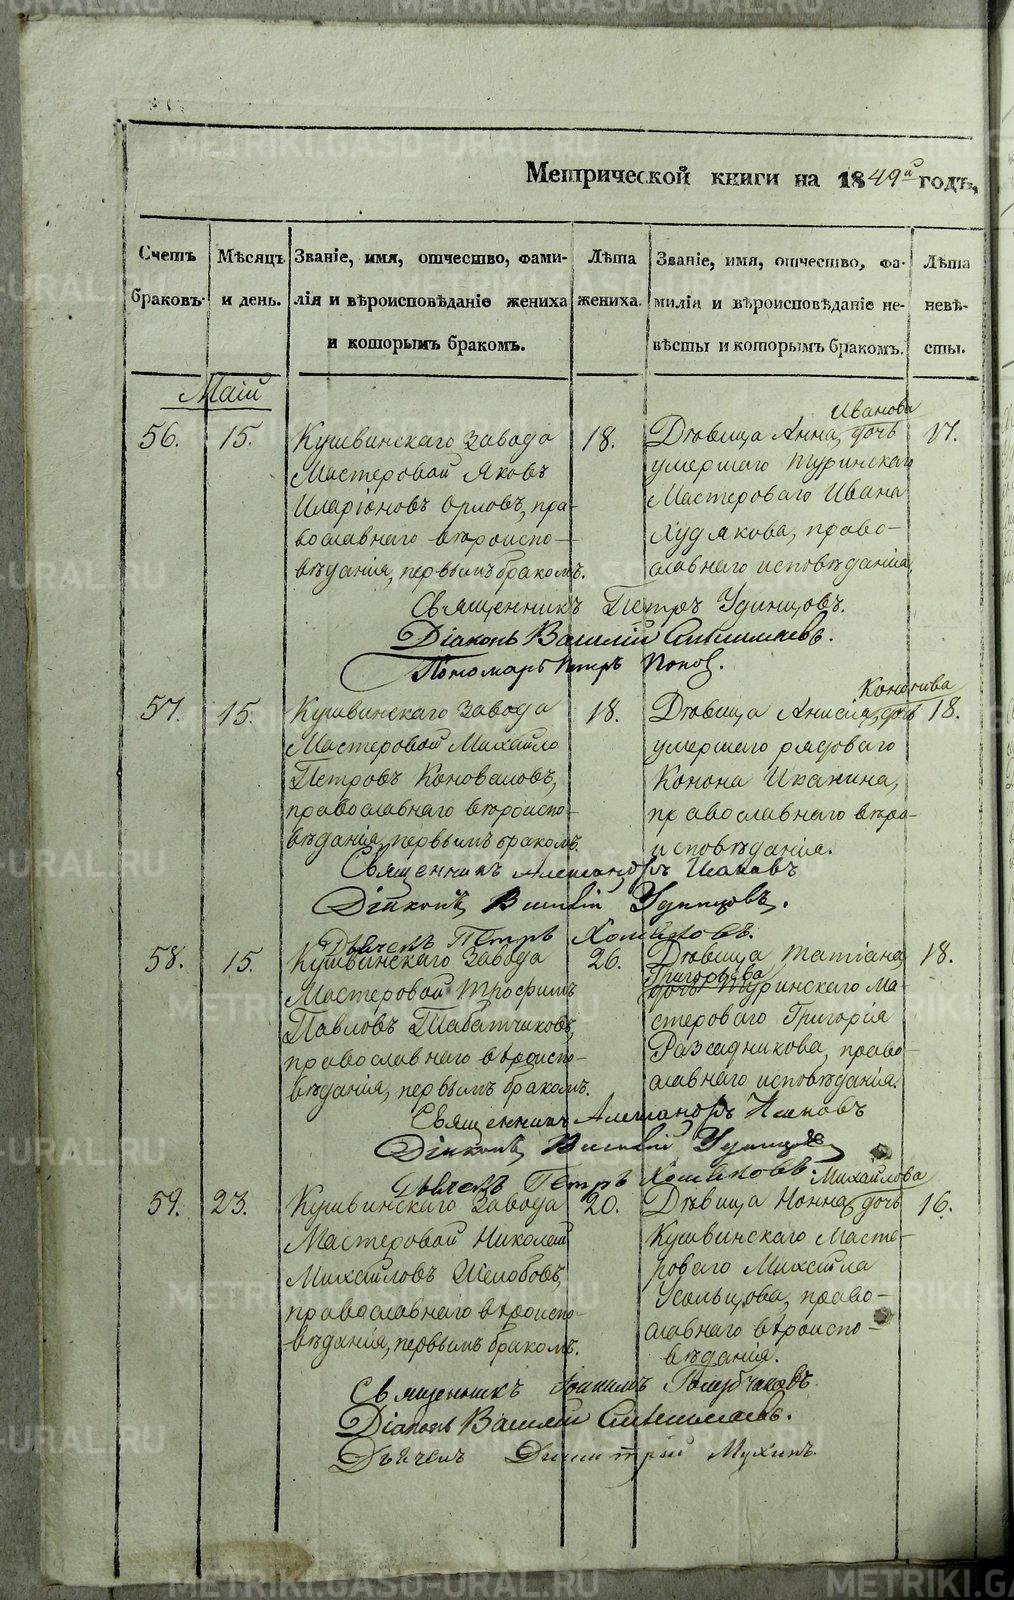 Метрической книги на 1849й годъ,
Счетъ браковъ.
Мѣсяцъ и день.
Званіе, имя, отчество, фамилія и вѣроисповѣданіе жениха и которымъ бракомъ.
Лѣта жениха.
Званіе, имя, отчество, фамилія и вѣроисповѣданіе невѣсты и которымъ бракомъ.
Лѣта невѣсты.
Маій
56. 15.
Кушвинскаго Завода
Мастеровой Яковъ
Иларіоновъ Орловъ, пра-
вославнаго вѣроиспо-
вѣданія, первымъ бракомъ.
18.
Иванова
Дѣвица Анна, дочь
умершаго Туринскаго
Мастероваго Ивана
Худякова, право-
славнаго исповѣданія.
17.
Священникъ Петръ Удинцовъ.
Діаконъ Василій
Пономарь Петръ Попов.
57. 15.
Кушвинскаго Завода
Мастеровой Михайло
Петровъ Коноваловъ,
православнаго вѣроиспо-
вѣданія, первымъ бракомъ.
18.
Кононова
Дѣвица Анисія, дочь
умершаго рядоваго
Конона Иканина,
православнаго вѣро-
исповѣданія.
18.
Священникъ Александръ Исаковъ
Діаконъ Василій Удинцовъ.
Дьячекъ Петръ Хомяковъ.
58. 15.
Кушвинскаго Завода
Мастеровой Трофимъ
Павловъ Табатчиковъ,
православнаго вѣроиспо-
вѣданія, первымъ бракомъ.
26.
Дѣвица Татіана
Григорьева
дочь Туринскаго Ма-
стероваго Григорія
Разсадникова, право-
славнаго исповѣданія.
18.
Священникъ Александръ Исаковъ
Діаконъ Василій Удинцовъ
Дьячекъ Петръ Хомяковъ.
59. 23.
Кушвинскаго Завода
Мастеровой Николай
Михайловъ Шелобовъ,
православнаго вѣроиспо-
вѣданія, первымъ бракомъ.
20.
Михайлова
Дѣвица Нонна, дочь
Кушвинскаго Масте-
роваго Михайла
Усольцова, право-
славнаго вѣроиспо-
вѣданія.
16.
Священникъ Іоакимъ
Діаконъ Василій
Дьячекъ Димитрій Мухинъ.
METRIKI.GASO-URAL.RU